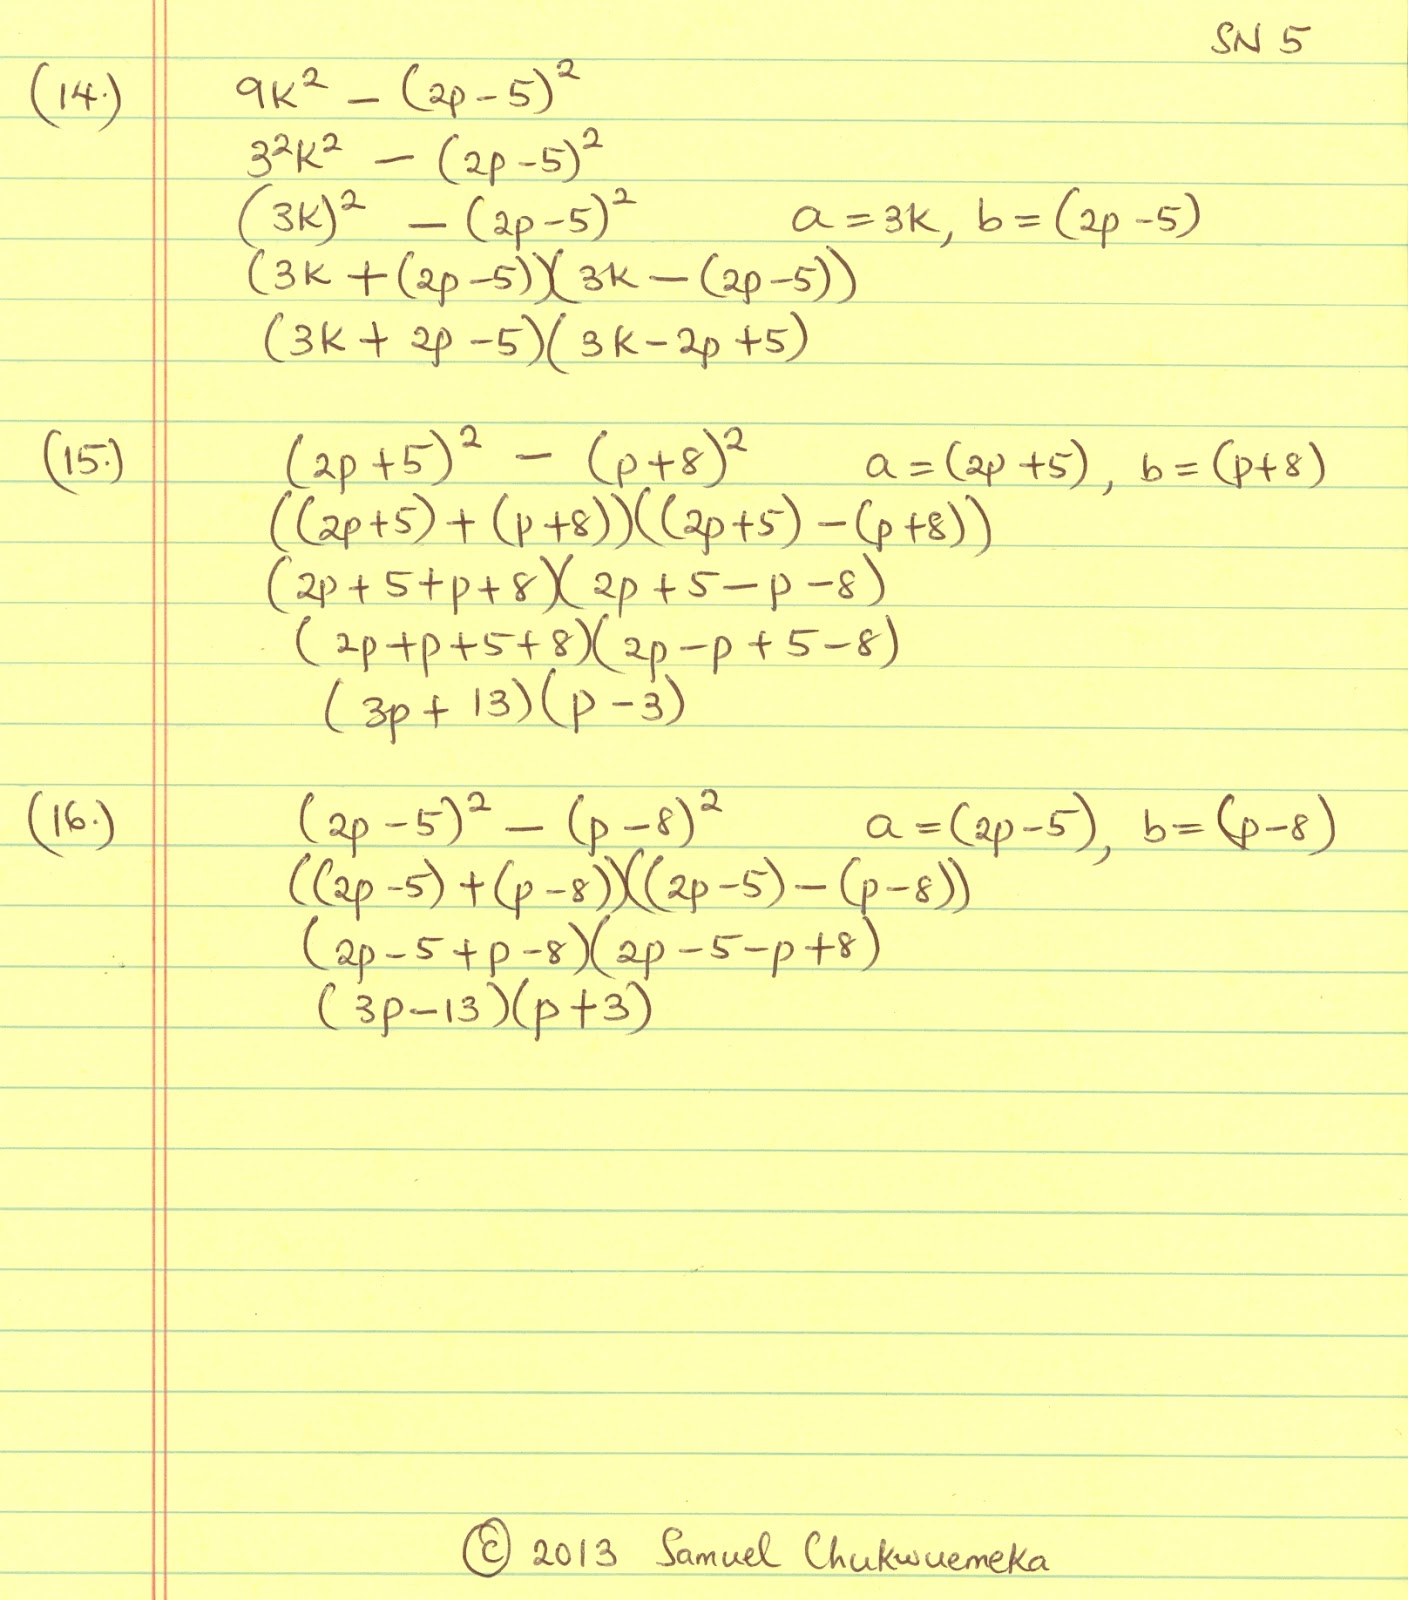 SN 5
(14.) 9k² - (2p-5)²
3²k² - (2p-5)²
(3k)² - (2p-5)² a = 3k, b = (2p-5)
(3k + (2p-5))(3k - (2p-5))
(3k + 2p - 5)(3k - 2p + 5)
(15.) (2p+5)² - (p+8)² a = (2p+5), b = (p+8)
((2p+5) + (p+8))((2p+5) - (p+8))
(2p+5+p+8)(2p+5-p-8)
(2p+p+5+8)(2p-p+5-8)
(3p+13)(p-3)
(16.) (2p-5)² - (p-8)² a = (2p-5), b = (p-8)
((2p-5) + (p-8))((2p-5) - (p-8))
(2p-5+p-8)(2p-5-p+8)
(3p-13)(p+3)
© 2013 Samuel Chukwuemeka